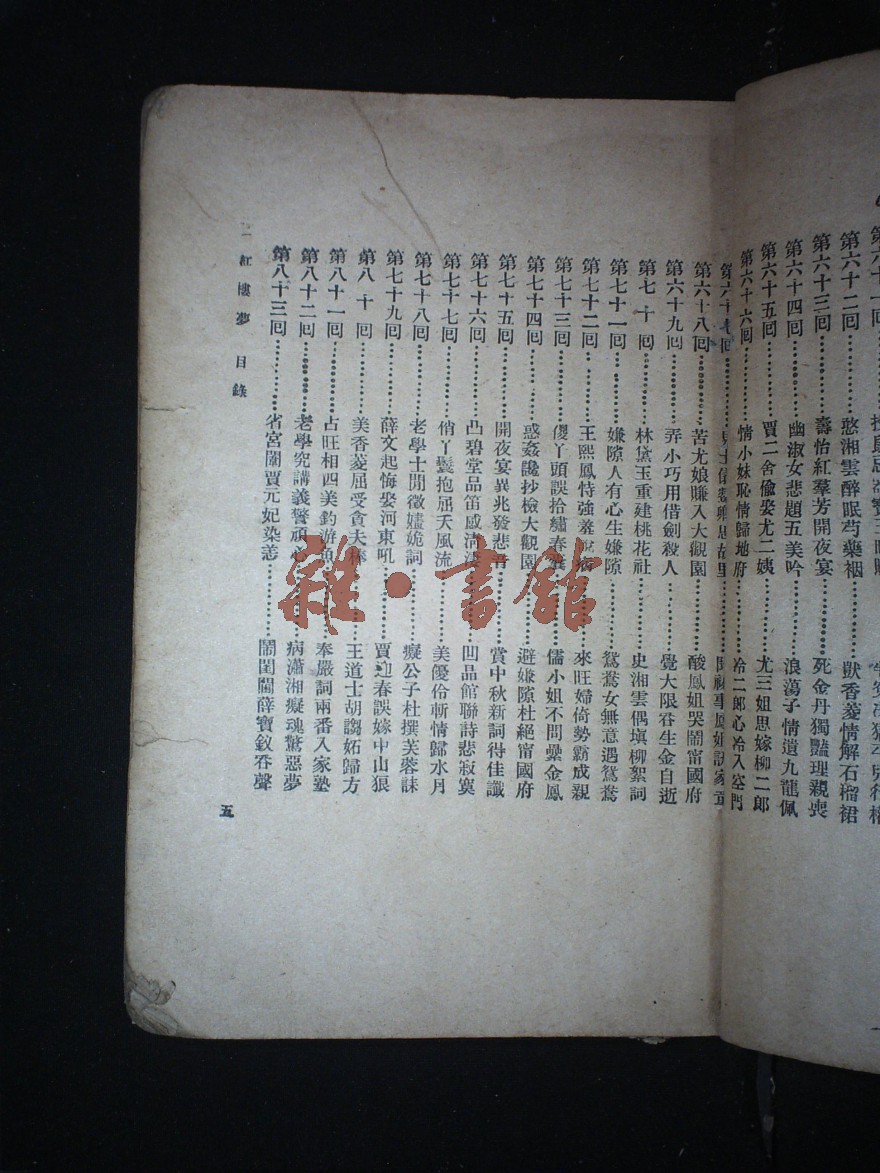 第六十二回 憨湘雲醉眠芍藥裀 獃香菱情解石榴裙
第六十三回 壽怡紅羣芳開夜宴 死金丹獨豔理親喪
第六十四回 幽淑女悲題五美吟 浪蕩子情遺九龍佩
第六十五回 賈二舍偷娶尤二姨 尤三姐思嫁柳二郎
第六十六回 情小妹恥情歸地府 冷二郎心冷入空門
第六十七回
第六十八回 苦尤娘賺入大觀園 酸鳳姐哭鬧甯國府
第六十九回 弄小巧用借劍殺人 覺大限吞生金自逝
第七十回 林黛玉重建桃花社 史湘雲偶塡柳絮詞
第七十一回 嫌隙人有心生嫌隙 鴛鴦女無意遇鴛鴦
第七十二回 王熙鳳恃強羞 來旺婦倚勢霸成親
第七十三回 傻丫頭誤拾繡春囊 儒小姐不問纍金鳳
第七十四回 惑姦讒抄檢大觀園 避嫌隙杜絕甯國府
第七十五回 開夜宴異兆發悲音 賞中秋新詞得佳讖
第七十六回 凸碧堂品笛感淒清 凹晶館聯詩悲寂寞
第七十七回 俏丫鬟抱屈夭風流 美優伶斬情歸水月
第七十八回 老學士閒徵姽嫿詞 癡公子杜撰芙蓉誄
第七十九回 薛文起悔娶河東吼 賈迎春誤嫁中山狼
第八十回 美香菱屈受貪夫棒 王道士胡謅妬婦方
第八十一回 占旺相四美釣游魚 奉嚴詞兩番入家塾
第八十二回 老學究講義警頑心 病瀟湘癡魂驚惡夢
第八十三回 省宮闈賈元妃染恙 鬧閨閫薛寶釵吞聲
紅樓夢 目錄
五
雜·書館